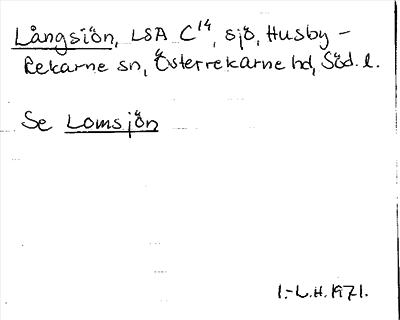 Långsjön, LSA C¹⁴, sjö, Husby-
Rekarne sn, Österrekarne hd, Söd. l.
Se Lomsjön
I.-L.H. 1971.